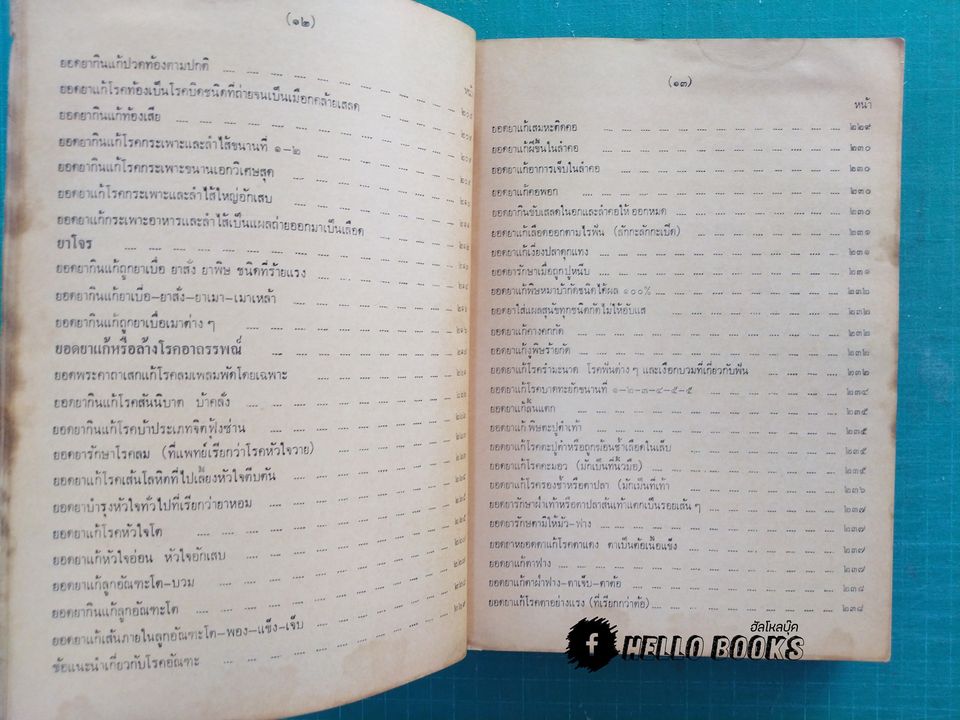 (๑๒)
ยอดยากินแก้ปวดท้องตามปกติ
ยอดยาแก้โรคท้องเป็นโรคบิดชนิดที่ถ่ายจนเป็นเมือกคล้ายเสลด
ยอดยากินแก้ท้องเสีย
ยอดยากินแก้โรคกระเพาะและลำไส้ขนานที่ ๑-๒
ยอดยากินแก้โรคกระเพาะขนานเอกวิเศษสุด
ยอดยาแก้โรคกระเพาะและลำไส้ใหญ่อักเสบ
ยอดยาแก้กระเพาะอาหารและลำไส้เป็นแผลถ่ายออกมาเป็นเลือด
ยาโจร
ยอดยากินแก้ถูกยาเบื่อ ยาสั่ง ยาพิษ ชนิดที่ร้ายแรง
ยอดยากินแก้ยาเบื่อ-ยาสั่ง-ยาเมา-เมาเหล้า
ยอดยากินแก้ถูกยาเบื่อเมาต่าง ๆ
ยอดยาแก้หรือล้างโรคอาถรรพณ์
ยอดพระคาถาเสกแก้โรคลมเพลมพัดโดยเฉพาะ
ยอดยากินแก้โรคสันนิบาต บ้าคลั่ง
ยอดยากินแก้โรคบ้าประเภทจิตฟุ้งซ่าน
ยอดยารักษาโรคลม (ที่แพทย์เรียกว่าโรคหัวใจวาย)
ยอดยาแก้โรคเส้นโลหิตที่ไปเลี้ยงหัวใจตีบตัน
ยอดยาบำรุงหัวใจทั่วไปที่เรียกว่ายาหอม
ยอดยาแก้โรคหัวใจโต
ยอดยาแก้หัวใจอ่อน หัวใจอักเสบ
ยอดยาแก้ลูกอัณฑะโต-บวม
ยอดยากินแก้ลูกอัณฑะโต
ยอดยาแก้เส้นภายในลูกอัณฑะโต-พอง-แข็ง-เจ็บ
ข้อแนะนำเกี่ยวกับโรคอัณฑะ
(๑๓)
หน้า
ยอดยาแก้เสมหะติดคอ ๒๒๙
ยอดยาแก้ฝีขึ้นในลำคอ ๒๓๐
ยอดยาแก้อาการเจ็บในลำคอ ๒๓๐
ยอดยาแก้คอพอก ๒๓๐
ยอดยากินขับเสลดในอกและลำคอให้ออกหมด ๒๓๐
ยอดยาแก้เลือดออกตามไรฟัน (ลักกะลักกะเปิด) ๒๓๑
ยอดยาแก้เงี่ยงปลาดุกแทง ๒๓๑
ยอดยารักษาเมื่อถูกปูหนีบ ๒๓๑
ยอดยาแก้พิษหมาบ้ากัดชนิดได้ผล ๑๐๐% ๒๓๒
ยอดยาใส่แผลสุนัขทุกชนิดกัดไม่ให้อับแส ๒๓๒
ยอดยาแก้คางคกกัด ๒๓๒
ยอดยาแก้งูพิษร้ายกัด ๒๓๒
ยอดยาแก้โรครำมะนาด โรคฟันต่าง ๆ และเงือกบวมที่เกี่ยวกับฟัน ๒๓๒
ยอดยาแก้โรคบาดทะยักขนานที่ ๑-๒-๓-๔-๕-๕ ๒๓๔
ยอดยาแก้ลิ้นแตก ๒๓๕
ยอดยาแก้พิษตะปูตำเท้า ๒๓๕
ยอดยาแก้โรคตะปูตำหรือถูกฆ้อนช้ำเลือดในเล็บ ๒๓๕
ยอดยาแก้โรคตะมอว (มักเป็นที่นิ้วมือ) ๒๓๕
ยอดยาแก้โรครองช้ำหรือตาปลา (มักเม็นที่เท้า ๒๓๖
ยอดยารักษาฝ่าเท้าหรือตาปลาส้นเท้าแตกเป็นรอยเส้น ๆ ๒๓๗
ยอดยารักษตามิให้มัว-ฟาง ๒๓๗
ยอดยาหยอดตาแก้โรคตาแดง ตาเป็นต้อเนื้อแข็ง ๒๓๗
ยอดยาแก้ตาฟาง ๒๓๗
ยอดยาแก้ตาฝ้าฟาง-ตาเจ็บ-ตาต้อ ๒๓๘
ยอดยาแก้โรคตาอย่างแรง (ที่เรียกว่าต้อ) ๒๓๘
ฮัลโหลบุ๊ค
f HELLO BOOKS